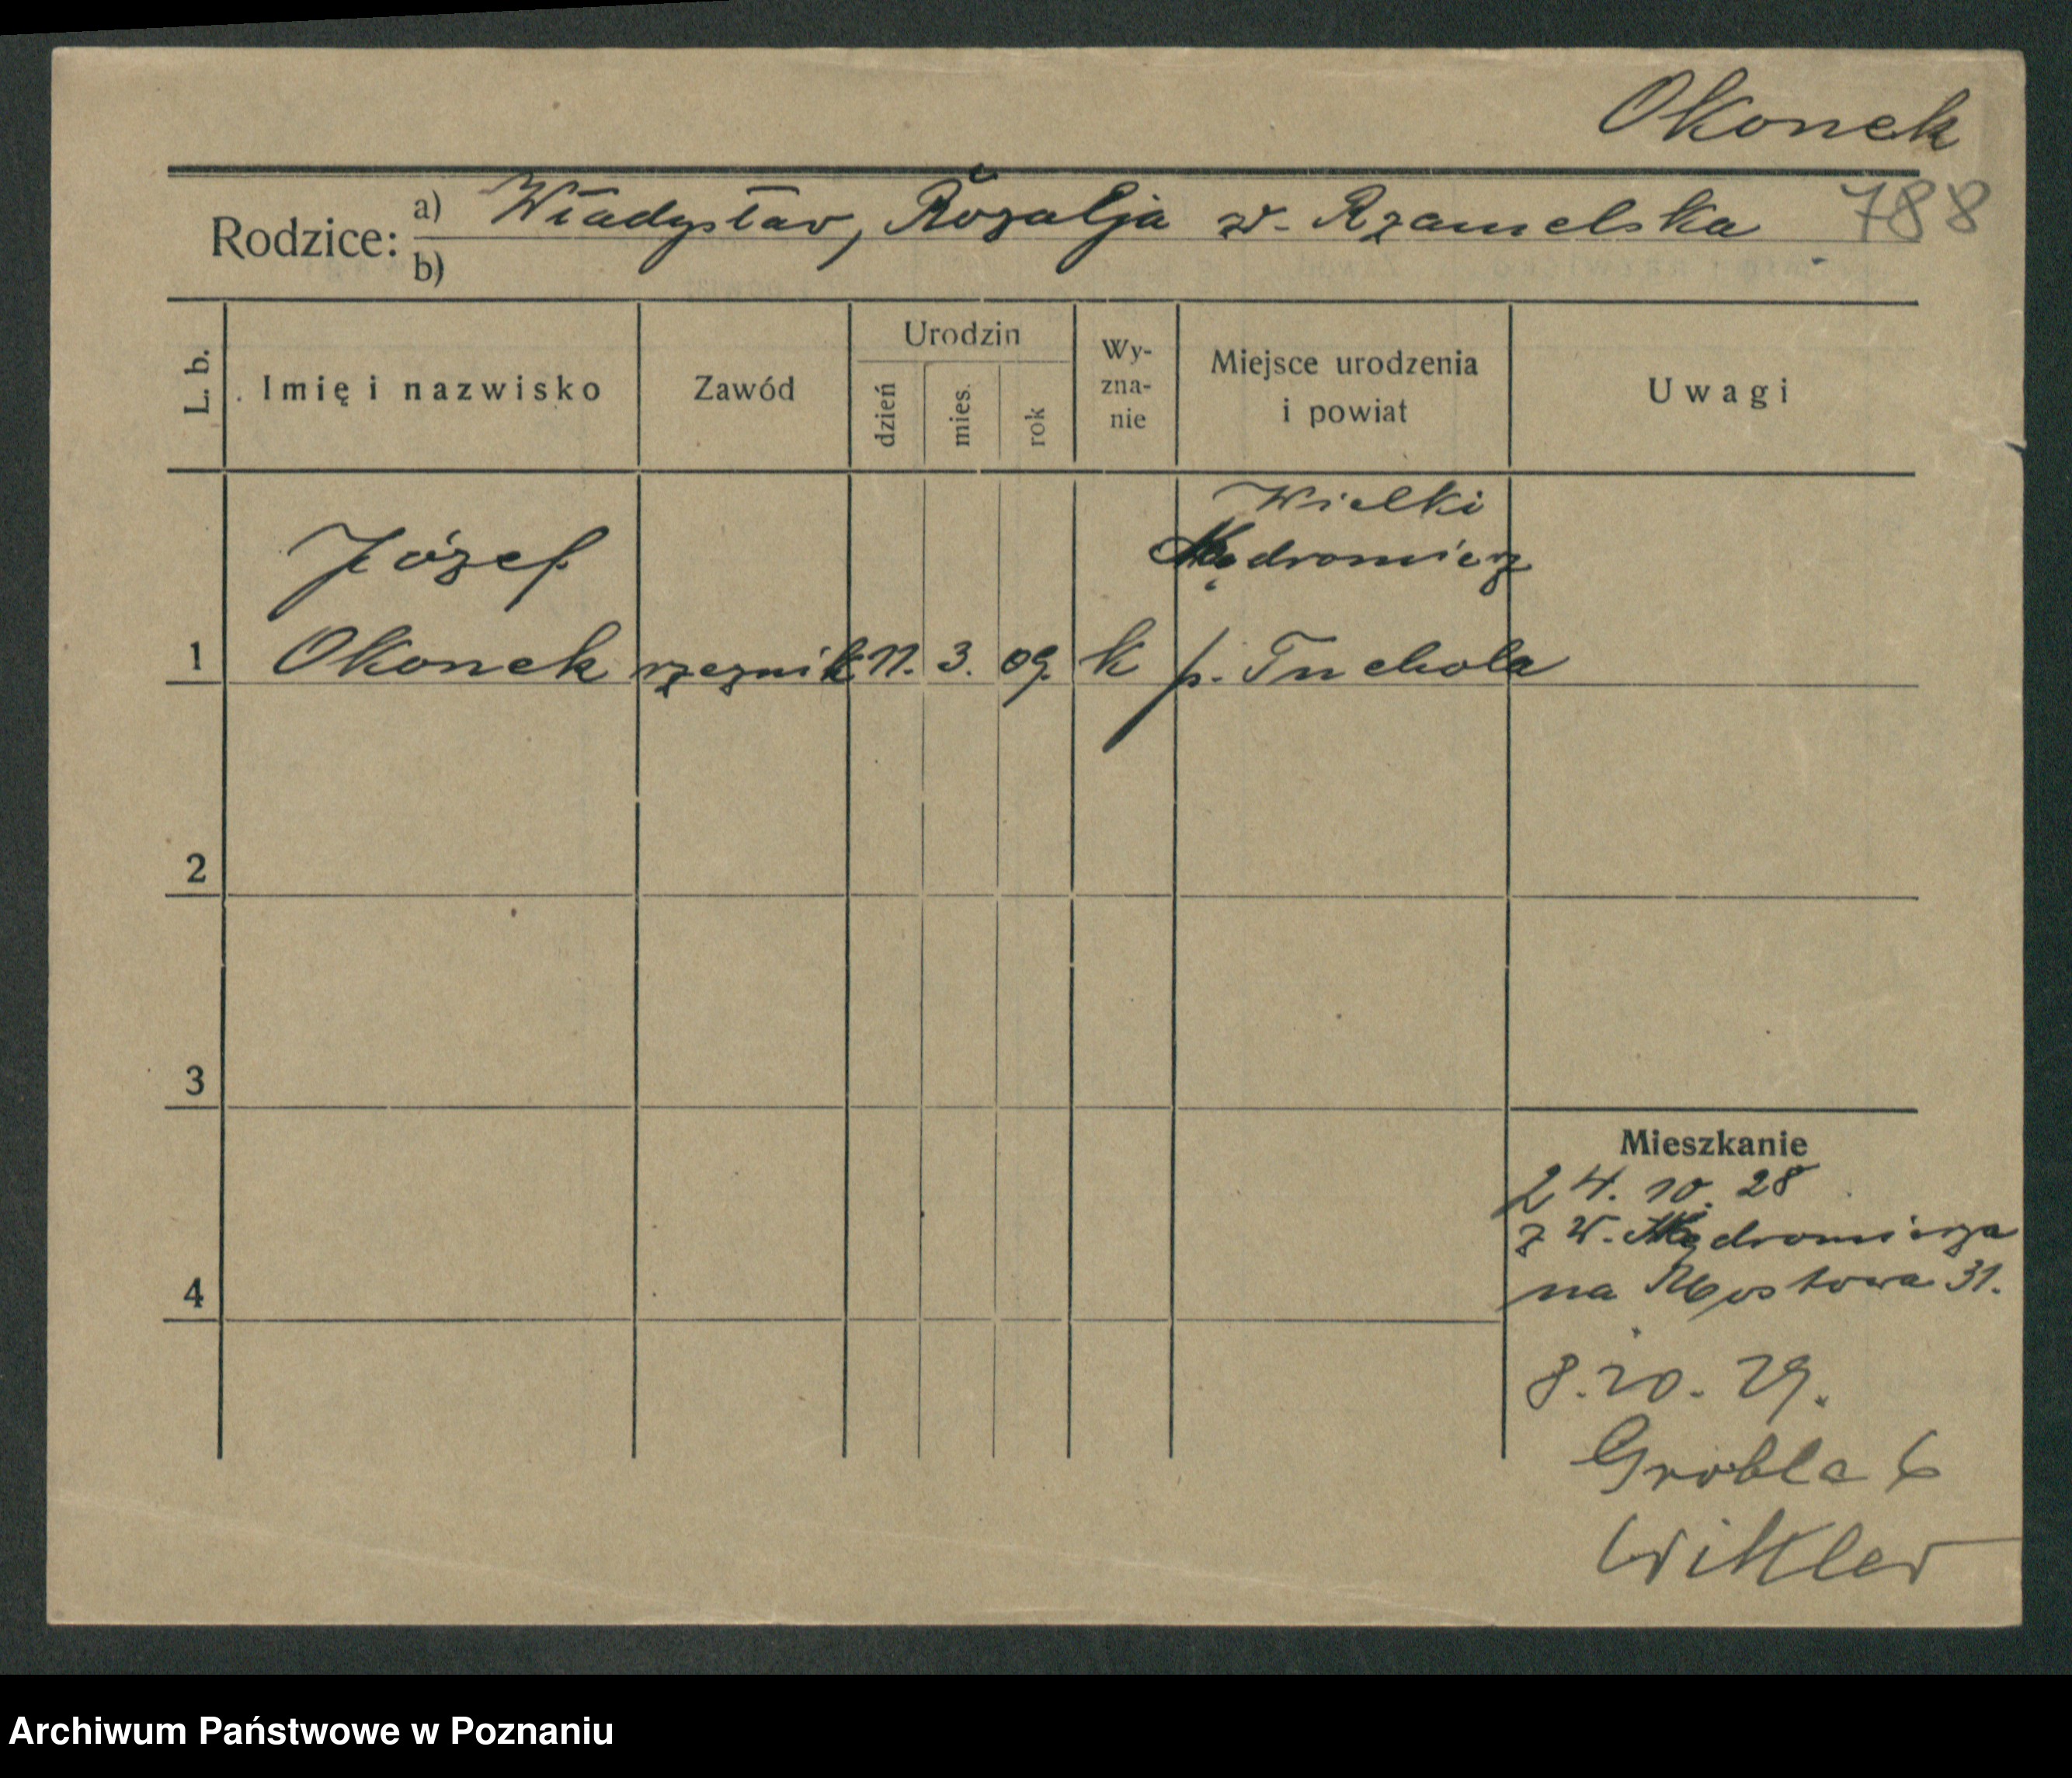 Okonek
788
Rodzice: a) Władysław, Rozalja z d. Rzamelska
b)
L. b.
Imię i nazwisko
Zawód
Urodzin
dzień
mies.
rok
Wy-
zna-
nie
Miejsce urodzenia
i powiat
Uwagi
Józef
Wielki
Mędromierz
1 Okonek rzeznik 11. 3. 09. k p. Tuchola
2
3
4
Mieszkanie
24. 10. 28
z W. Mędromierza
na Mostowa 31.
8. 10. 29.
Grobla 6
Wittler
Archiwum Państwowe w Poznaniu